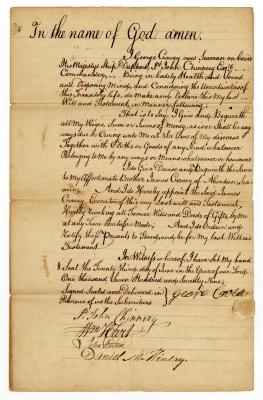 In the name of God amen.
I George Covey now Seaman on board
His Majestys Ship Daphne St. John Chinnery Esqr.
Commander, Being in bodily Health and Sound
and Disposing Mind, and Considering the Uncertainties of
this Transitory Life, do Make and Declare this My last
Will and Testament, in Manner following
That is to Say, I Give And Bequeath
all My Wages, Sum or Sums of Money, as is or Shall be any
ways due or Owing unto Me at the time of my disease
Together with Stocks or Goods of any Kind whatsoever
Belonging to Me by any ways or Means whatsoever or however
I do Give Devise and Bequeath the Same
to My Affectionate Brother James Covey of London, Sea
And I do Hereby appoint the Said James
Covey Executor of this my last will and Testament,
Hereby revoking all former Wills and Deeds of Gifts, by Me
at any time heretofore Made, And I do Ordain and
Ratify these presents to Stand, and be for my last Will and
Testament
In Witness whereof I have Set My hand
& Seal the Twenty third day of June in the Year of our Lord
One thousand Seven Hundred and Seventy Nine
Signed Sealed and Delivered in
Presence of us the Subscribers
St. John Chinnery
Wm. Hart
Daniel McKinley